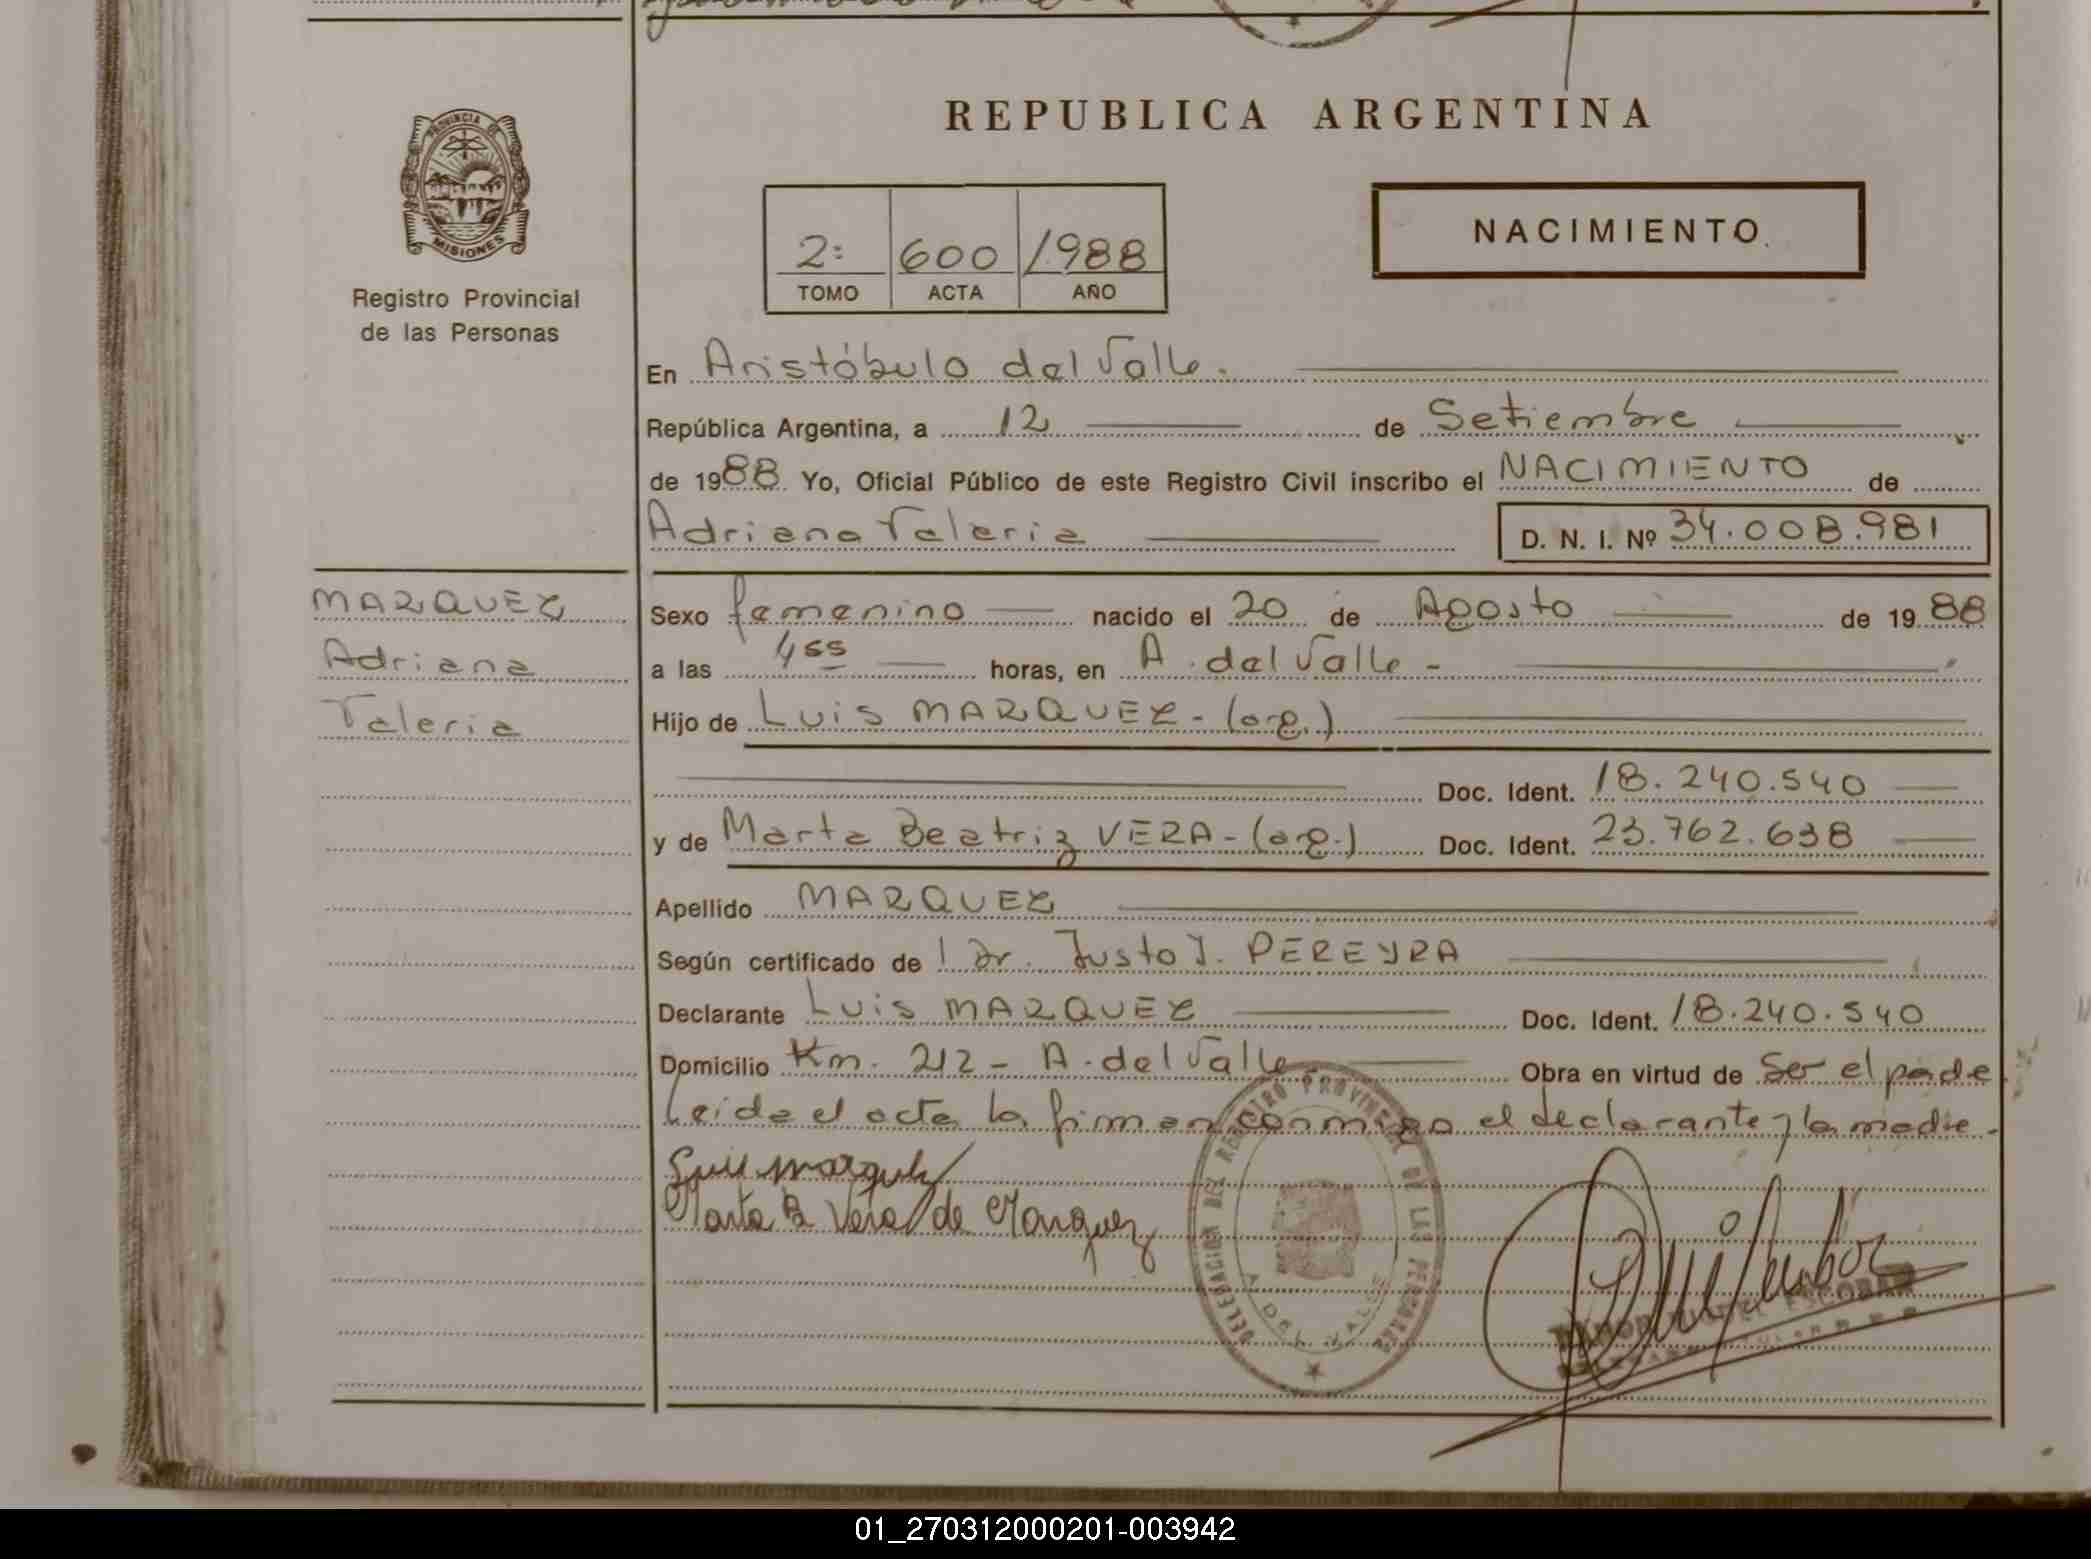 REPUBLICA ARGENTINA
PROVINCIA DE
MISIONES
Registro Provincial
de las Personas
2: 600 1988
TOMO ACTA AÑO
NACIMIENTO
En Aristóbulo del Valle.
República Argentina, a 12 de Setiembre
de 1988 Yo, Oficial Público de este Registro Civil inscribo el NACIMIENTO de
Adriana Valeria
D. N. I. Nº 34.008.981
MARQUEZ
Adriana
Valeria
Sexo femenino nacido el 20 de Agosto de 1988
a las 4 55 horas, en A. del Valle -
Hijo de Luis MARQUEZ - (arg.)
Doc. Ident. 18.240.540
y de Marta Beatriz VERA - (arg.) Doc. Ident. 23.762.638
Apellido MARQUEZ
Según certificado de l Dr. Justo J. PEREYRA
Declarante Luis MARQUEZ Doc. Ident. 18.240.540
Domicilio Km. 212 - A. del Valle Obra en virtud de ser el padre
Leida el acta la firman conmigo el declarante y la madre.
Luis Marquez
Marta B Vera de Marquez
DELEGACION DEL REGISTRO PROVINCIAL DE LAS PERSONAS
A. DEL VALLE
RAMON MIGUEL ESCOBAR
01_270312000201-003942